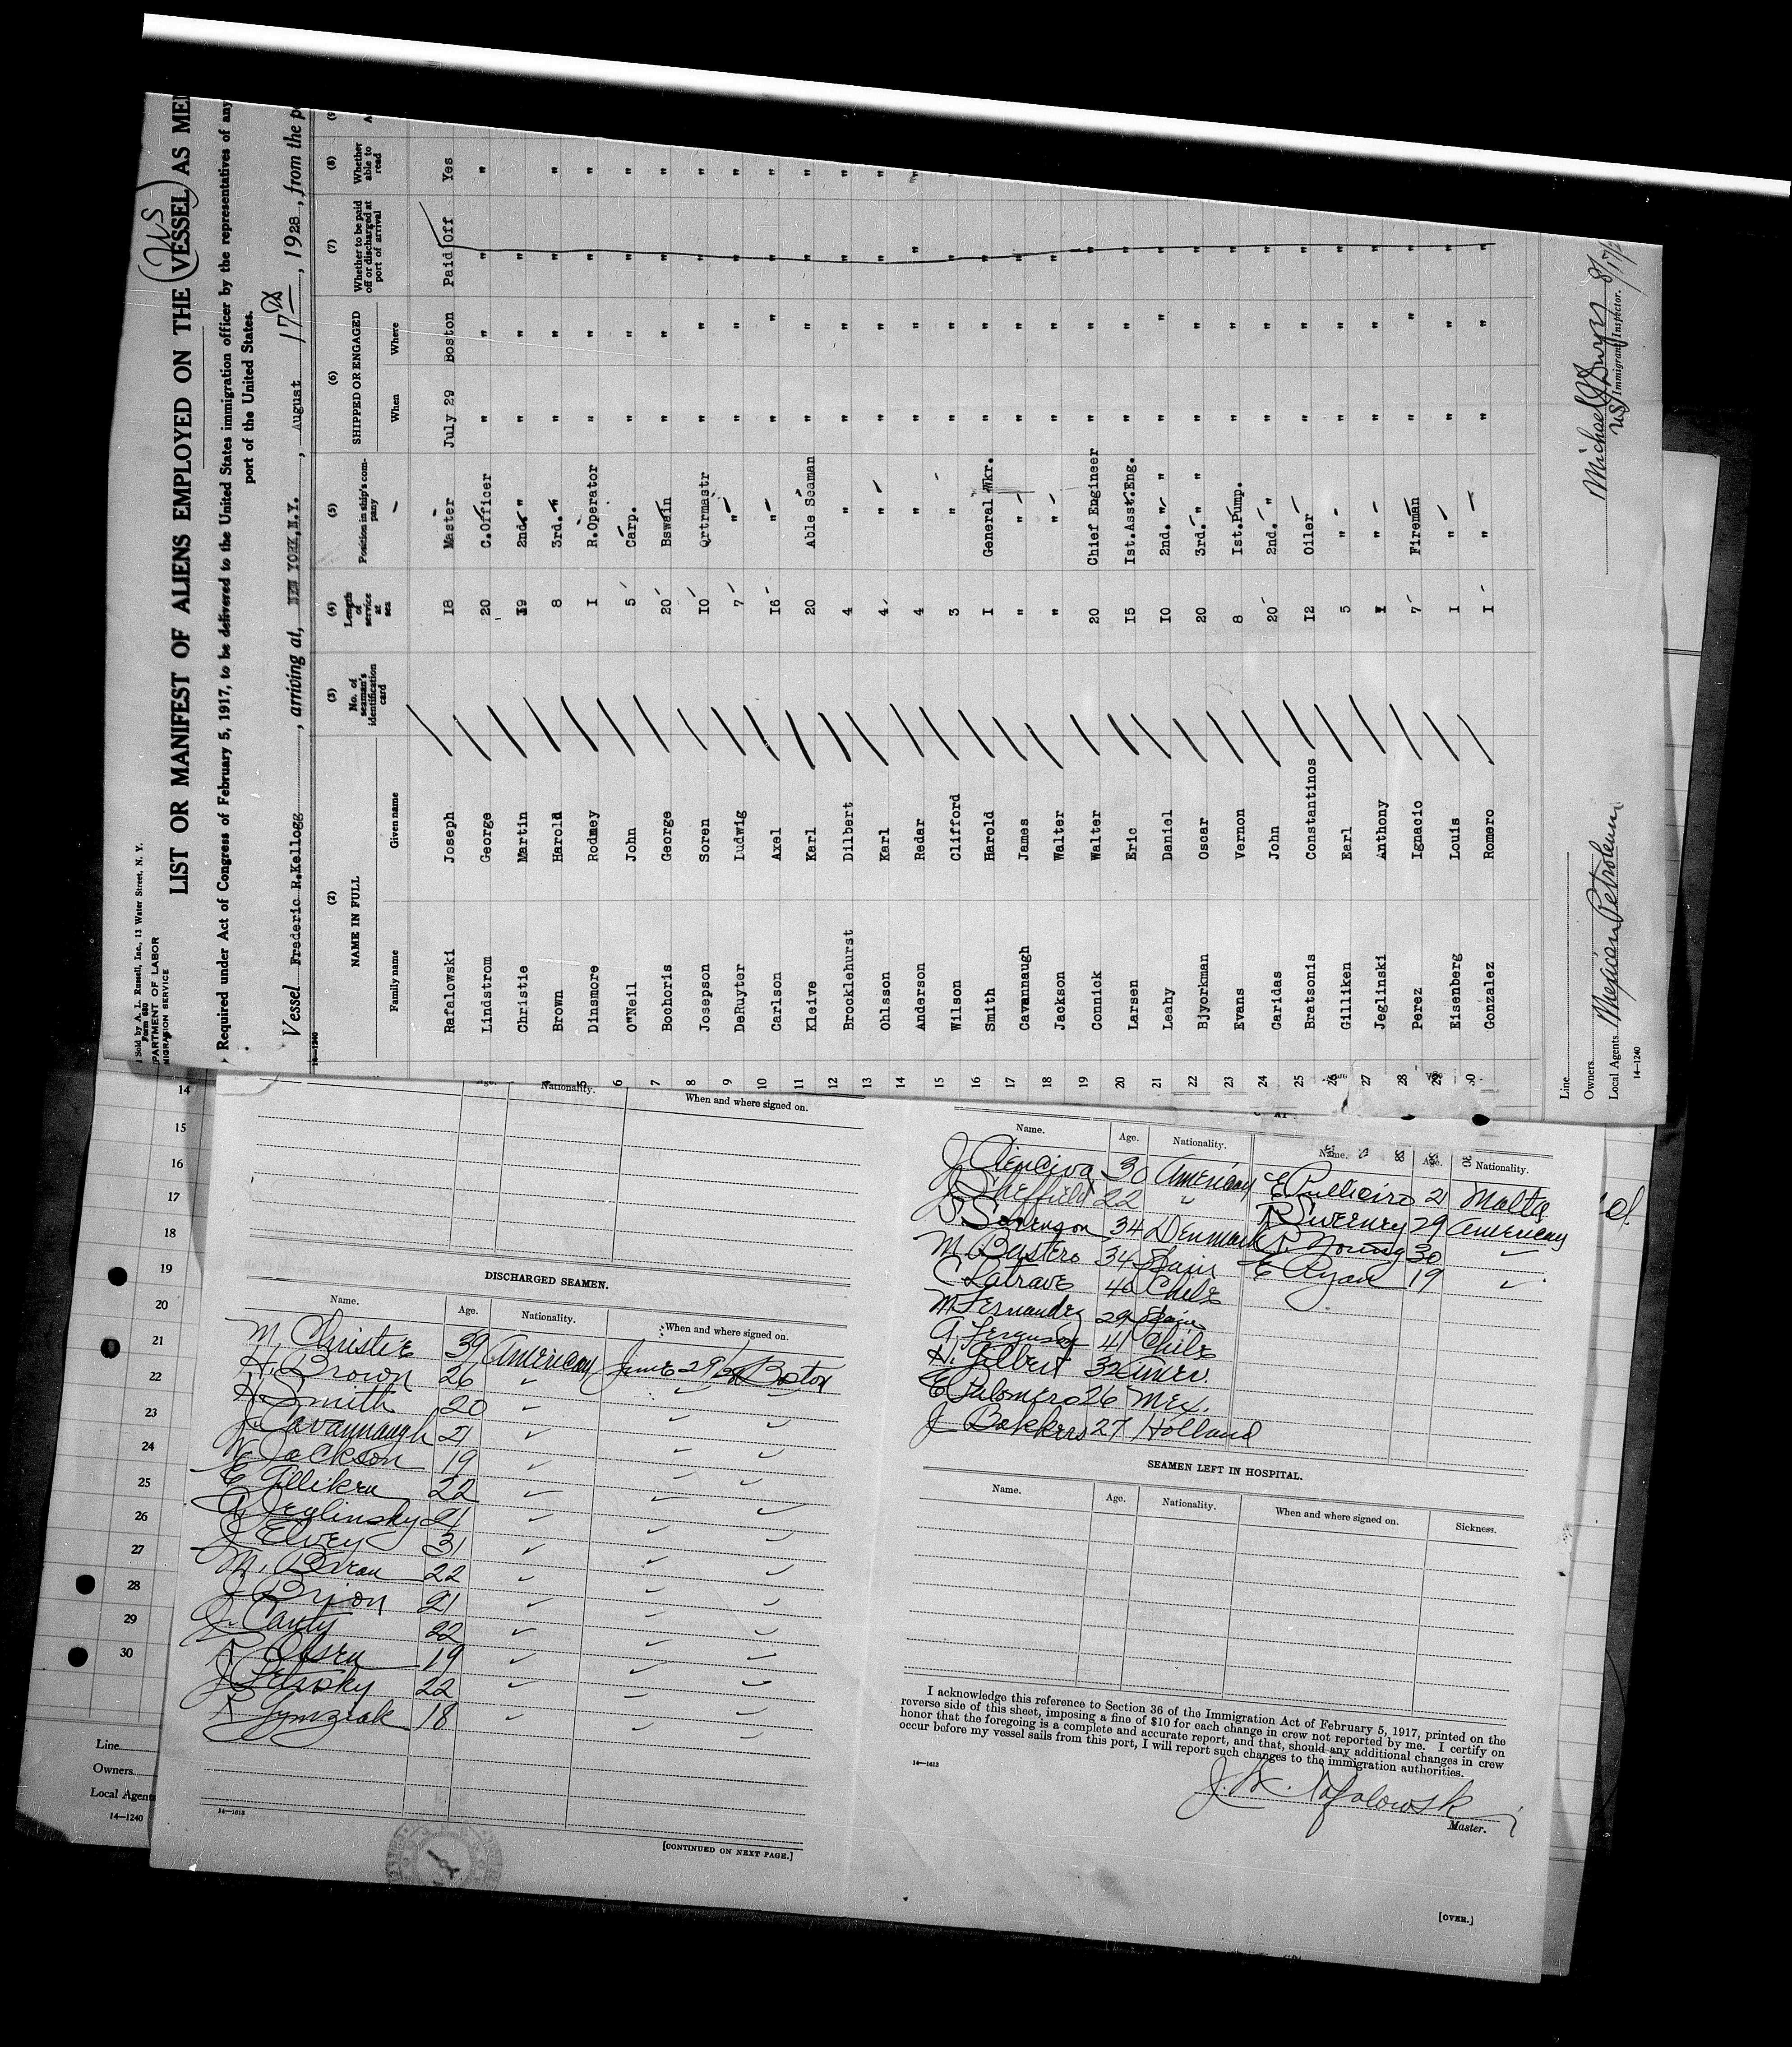 Sold by A. L. Russell, Inc., 13 Water Street, N. Y.
Form 680
PARTMENT OF LABOR
MIGRATION SERVICE
US
LIST OR MANIFEST OF ALIENS EMPLOYED ON THE VESSEL AS MEM
Required under Act of Congress of February 5, 1917, to be delivered to the United States immigration officer by the representatives of any
port of the United States.
Vessel Frederic R.Kellogg, arriving at, NEW YORK,N.Y., August 17th, 1928, from the po
14—1240
(2) NAME IN FULL (3) No. of seaman's identification card (4) Length of service at sea (5) Position in ship's company (6) SHIPPED OR ENGAGED (7) Whether to be paid off or discharged at port of arrival (8) Whether able to read
Family name Given name When Where
Rafalowski Joseph 18 Master July 29 Boston Paid Off Yes
2 Lindstrom George 20 C.Officer " " " "
3 Christie Martin 19 2nd. " " " "
4 Brown Harold 8 3rd. " " " " "
5 Dinsmore Rodney I R.Operator " " " "
6 O"Neil John 5 Carp. " " " "
7 Bochoris George 20 Bswain " " " "
8 Josepson Soren 10 Qrtrmastr " " " "
9 DeRuyter Ludwig 7 " " " " "
10 Carlson Axel 16 " " " " "
11 Kleive Karl 20 Able Seaman " " " "
12 Brocklehurst Dilbert 4 " " " " "
13 Ohlsson Karl 4 " " " " "
14 Anderson Redar 4 " " " " "
15 Wilson Clifford 3 " " " "
16 Smith Harold I General Wkr. " " "
17 Cavannaugh James " " " " "
18 Jackson Walter " " " " "
19 Connick Walter 20 Chief Engineer " " "
20 Larsen Eric 15 Ist.Asst.Eng. " " "
21 Leahy Daniel 10 2nd. " " " " "
22 Bjyorkman Oscar 20 3rd. " " " " "
23 Evans Vernon 8 Ist.Pump. " " "
24 Garidas John 20 2nd. " " " "
25 Bratsonis Constantinos 12 Oiler " " "
26 Gilliken Earl 5 " " " "
27 Jeglinski Anthony I " " " "
28 Perez Ignacio 7 Fireman " " "
29 Eisenberg Louis I " " " "
30 Gonzalez Romero I " " " "
Line
Owners
Local Agents Mexican Petroleum
14—1240
Immigrant Inspector.
14
15
16
17
18
19
20
21
22
23
24
25
26
27
28
29
30
Line
Owners
Local Agents
14—1240
Age. Nationality. When and where signed on.
DISCHARGED SEAMEN.
Name. Age. Nationality. When and where signed on.
M. Christie 39 American June 29/28 Boston
H. Brown 26
H. Smith 20
J. Cavannaugh 21
W. Jackson 19
E. Gilliken 22
A. Jeglinsky 21
J. Elvey 31
M. 22
J. 21
J. Canty 22
R. Olsen 19
J. 22
R. 18
14—1613
[CONTINUED ON NEXT PAGE.]
Name. Age. Nationality. Name. Age. Nationality.
J. 30 American E. 21 Malta
J. Sheffield 22 " R. Sweeney 29 American
S. Sorenson 34 Denmark P. Young 30
M. Bustero 34 Spain E. Ryan 19
C. Latrave 40 Chile
M. Fernandez 29 Spain
A. Ferguson 41 Chile
H. Gilbert 32 Amer.
E. Palomero 26 Mex.
J. Bakkers 27 Holland
SEAMEN LEFT IN HOSPITAL.
Name. Age. Nationality. When and where signed on. Sickness.
I acknowledge this reference to Section 36 of the Immigration Act of February 5, 1917, printed on the
reverse side of this sheet, imposing a fine of $10 for each change in crew not reported by me. I certify on
honor that the foregoing is a complete and accurate report, and that, should any additional changes in crew
occur before my vessel sails from this port, I will report such changes to the immigration authorities.
14—1613
Master.
[OVER.]